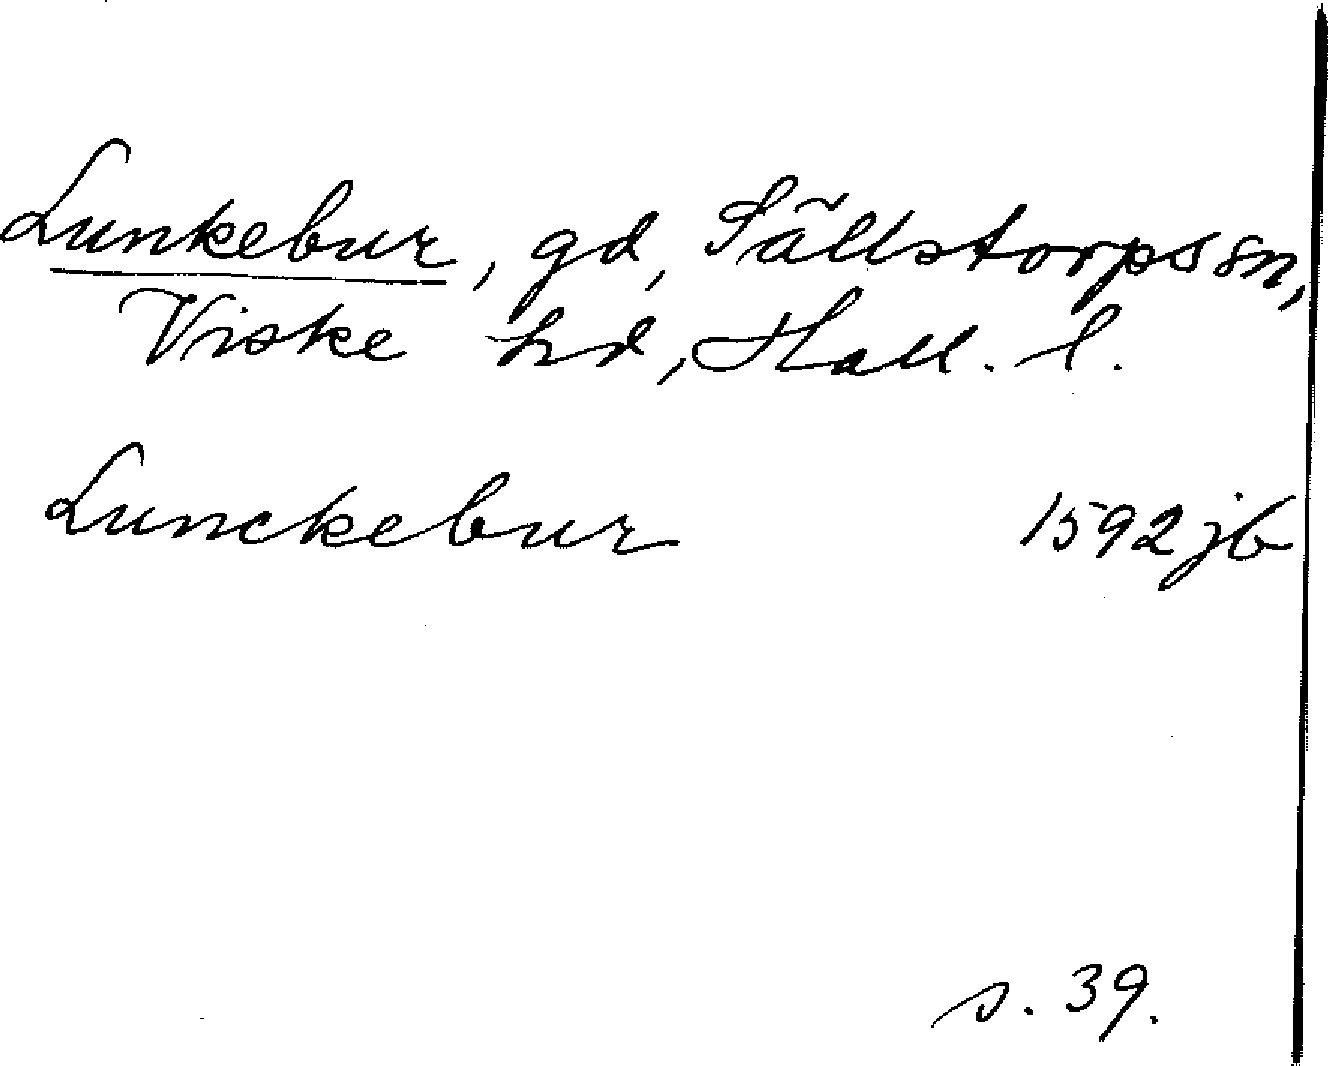 Lunkebur, gd, Sällstorps sn,
Viske hd, Hall. l.
Lunckebur 1592 jb
s. 39.